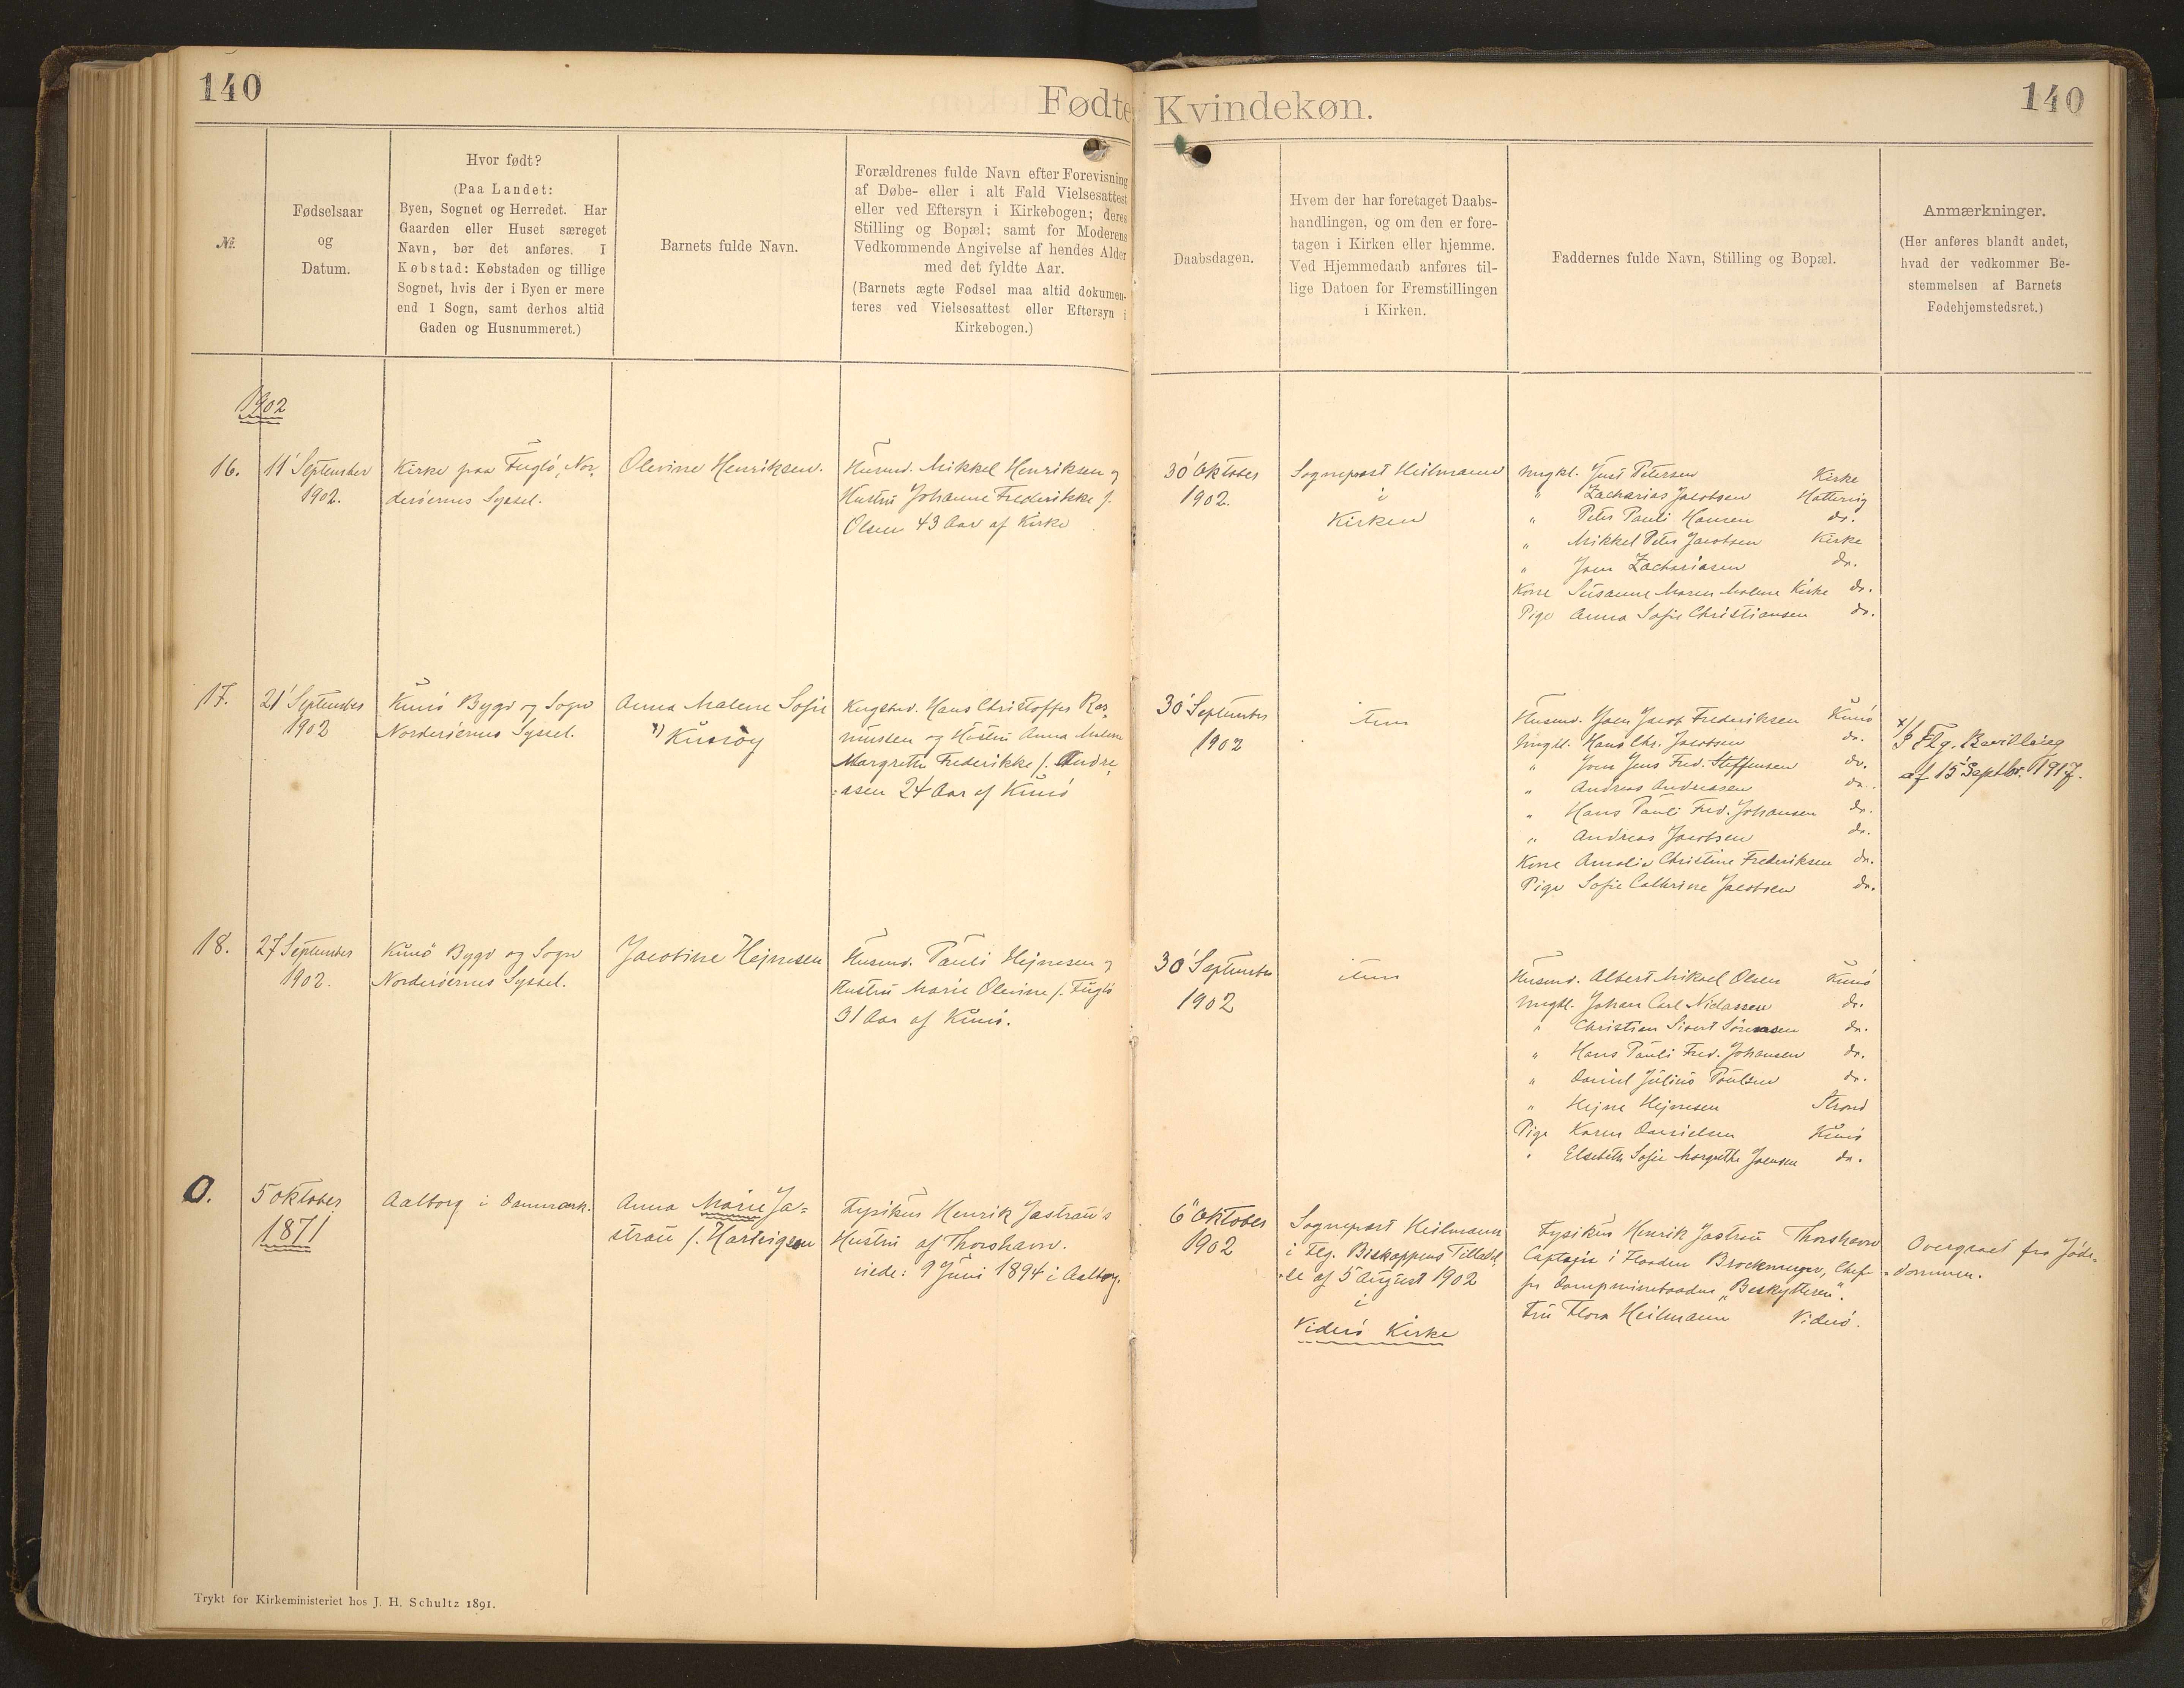 140
Fødte Kvindekøn.
140
№
Fødselsaar
og
Datum.
Hvor født?
(Paa Landet:
Byen, Sognet og Herredet. Har
Gaarden eller Huset særeget
Navn, bør det anføres. I
Købstad: Købstaden og tillige
Sognet, hvis der i Byen er mere
end 1 Sogn, samt derhos altid
Gaden og Husnummeret.)
Barnets fulde Navn.
Forældrenes fulde Navn efter Forevisning
af Døbe- eller i alt Fald Vielsesattest
eller ved Eftersyn i Kirkebogen; deres
Stilling og Bopæl; samt for Moderens
Vedkommende Angivelse af hendes Alder
med det fyldte Aar.
(Barnets ægte Fødsel maa altid dokumen-
teres ved Vielsesattest eller Eftersyn i
Kirkebogen.)
Daabsdagen.
Hvem der har foretaget Daabs-
handlingen, og om den er fore-
tagen i Kirken eller hjemme.
Ved Hjemmedaab anføres til-
lige Datoen for Fremstillingen
i Kirken.
Faddernes fulde Navn, Stilling og Bopæl.
Anmærkninger.
(Her anføres blandt andet,
hvad der vedkommer Be-
stemmelsen af Barnets
Fødehjemstedsret.)
1902
16.
11' September
1902.
Kirke paa Fuglö, Nor-
deröernes Syssel.
Olevine Henriksen.
Husmd. Mikkel Henriksen og
Hustru Johanne Frederikke f.
Olsen 43 Aar af Kirke
30' Oktober
1902.
Sognepræst Heilmann
i
Kirken
Ungkl. Jens Petersen Kirke
" Zacharias Jacobsen Hattervig
" Peter Pauli Hansen do.
" Mikkel Peter Jacobsen Kirke
" Joen Zachariasen do.
Kone Susanne Maren Malene Kirke do.
Pige Anna Sofie Christiansen do.
17.
21' September
1902
Kunö Bygd og Sogn
Norderöernes Syssel.
Anna Malene Sofie
Kunoy
Kngsbd. Hans Christoffer Ras-
mussen og Hustru Anna Malene
Margrethe Frederikke f. Andre-
asen 24 Aar af Kunö
30' September
1902
item
Husmd. Joen Jacob Frederiksen Kunö
Ungkl. Hans Chr. Jacobsen do.
" Joen Jens Fred. Steffensen do.
" Andreas Andreasen do.
" Hans Pauli Fred. Johansen do.
" Andreas Jacobsen do.
Kone Amalie Christine Frederiksen do.
Pige Sofie Cathrine Jacobsen do.
Flg. Bevilling
af 15' Septbr. 1917.
18.
27 September
1902.
Kunö Bygd og Sogn
Norderöernes Syssel.
Jacobine Hejnesen
Husmd. Pauli Hejnesen og
Hustru Marie Olevine f. Fuglö
31 Aar af Kunö.
30' September
1902
item
Husmd. Albert Mikael Olsen Kunö
Ungkl. Johan Carl Niclassen do.
" Christian Sivert Sörensen do.
" Hans Pauli Fred. Johansen do.
" Daniel Julius Poulsen do.
" Hejne Hejnesen Strond
Pige Karen Danielsen Kunö
" Elsebeth Sofie Margrethe Joensen do.
0.
5 Oktober
1871
Aalborg i Danmark.
Anna Marie Ja=
strau f. Hartvigson
Fysikus Henrik Jastrau's
Hustru af Thorshavn.
viede: 9 Juni 1894 i Aalborg.
6" Oktober
1902
Sognepræst Heilmann
i Flg. Biskoppens Tilladel-
se af 5 August 1902
i
Viderö Kirke
Fysikus Henrik Jastrau Thorshavn
Captajn i Flaaden Brockmeyer, Chef
for Dampminebaaden „Beskytteren".
Fru Flora Heilmann Viderö.
Overgaaet fra Jöde-
dommen.
Trykt for Kirkeministeriet hos J. H. Schultz 1891.